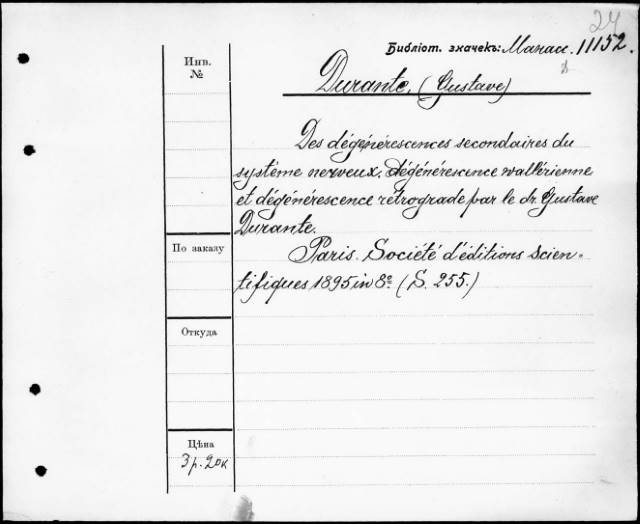 24
Библіот. значекъ: Манас. 11152.
Инв.
№
Durante. (Gustave)
Des dégénérescences secondaires du
système nerveux. dégénérescence wallérienne
et dégénérescence rétrograde par le dr. Gustave
Durante.
По заказу
Paris. Société d'éditions Scien-
tifiques 1895 in 8º (S. 255.)
Откуда
Цѣна
3 р. 20 к